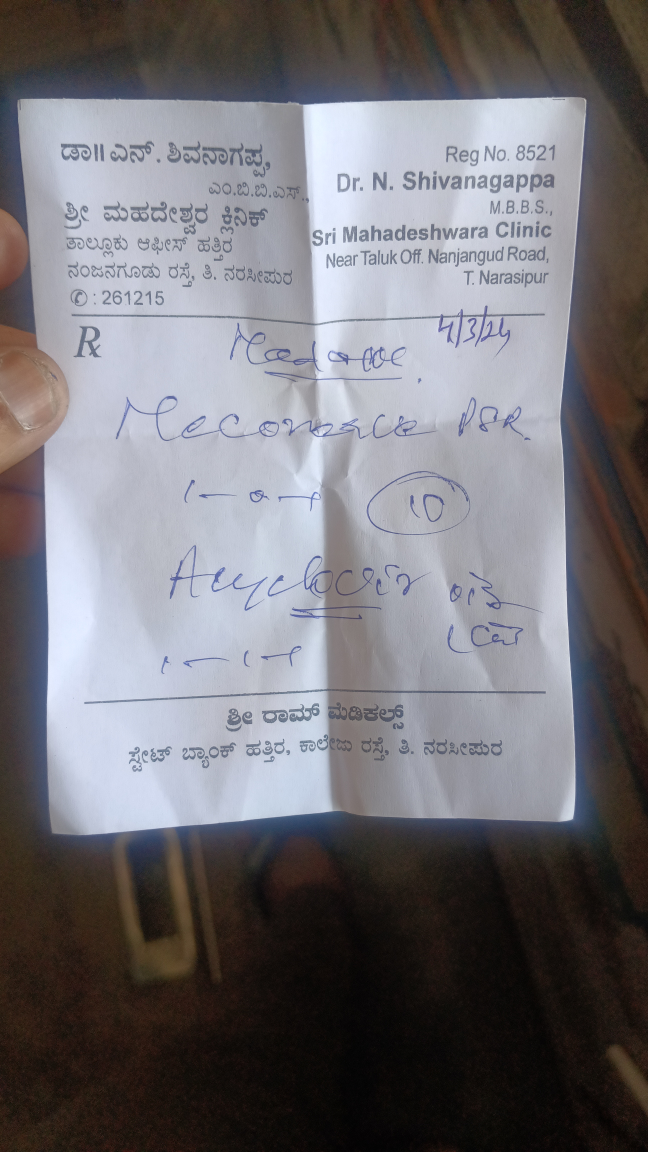 ಡಾ॥ ಎನ್. ಶಿವನಾಗಪ್ಪ,
ಎಂ.ಬಿ.ಬಿ.ಎಸ್.,
ಶ್ರೀ ಮಹದೇಶ್ವರ ಕ್ಲಿನಿಕ್
ತಾಲ್ಲೂಕು ಆಫೀಸ್ ಹತ್ತಿರ
ನಂಜನಗೂಡು ರಸ್ತೆ, ತಿ. ನರಸೀಪುರ
✆ : 261215
Reg No. 8521
Dr. N. Shivanagappa
M.B.B.S.,
Sri Mahadeshwara Clinic
Near Taluk Off. Nanjangud Road,
T. Narasipur
℞
4/3/24
1-0-1
10
Acyclovir
1-1-1
ಶ್ರೀ ರಾಮ್ ಮೆಡಿಕಲ್ಸ್
ಸ್ಟೇಟ್ ಬ್ಯಾಂಕ್ ಹತ್ತಿರ, ಕಾಲೇಜು ರಸ್ತೆ, ತಿ. ನರಸೀಪುರ